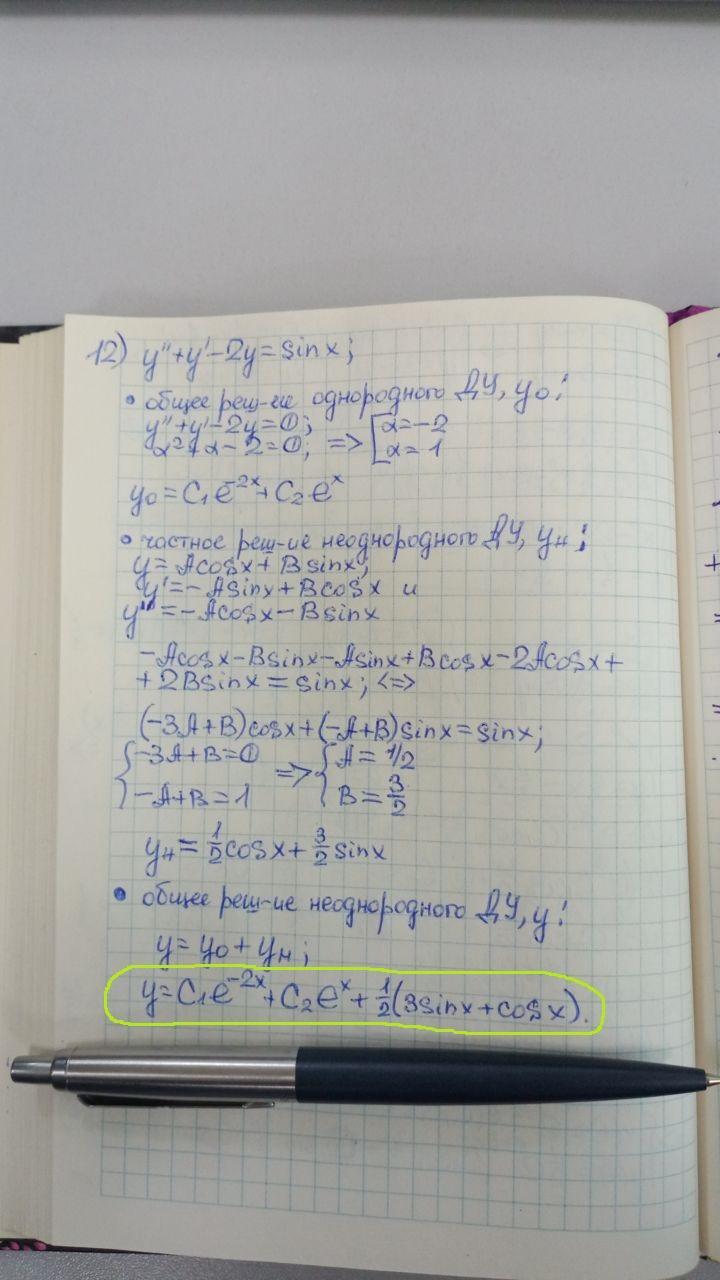 12) y''+y'-2y=sinx;
• общее реш-ие однородного ДУ, y₀:
y''+y'-2y=0;
α²+α-2=0; => [α=-2
α=1
y₀=C₁e^{-2x}+C₂e^x
• частное реш-ие неоднородного ДУ, yн:
y=Acosx+Bsinx;
y'=-Asinx+Bcosx и
y''=-Acosx-Bsinx
-Acosx-Bsinx-Asinx+Bcosx-2Acosx+
+2Bsinx=sinx; <=>
(-3A+B)cosx+(-A+B)sinx=sinx;
{-3A+B=0
-A+B=1 => {A=1/2
B=3/2
yн=1/2cosx+3/2sinx
• общее реш-ие неоднородного ДУ, y:
y=y₀+yн;
y=C₁e^{-2x}+C₂e^x+1/2(3sinx+cosx).